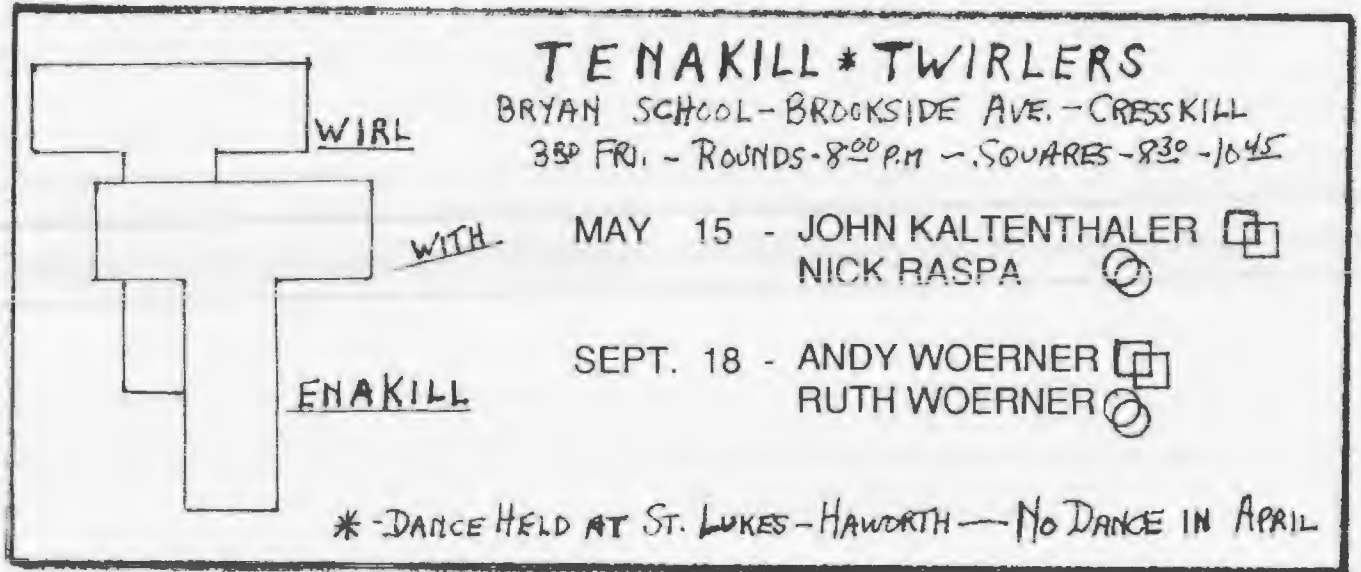 TENAKILL * TWIRLERS
BRYAN SCHOOL - BROOKSIDE AVE. - CRESSKILL
3RD FRI. - ROUNDS - 8:00 P.M - SQUARES - 8:30 - 10:45
WIRL
WITH
ENAKILL
MAY 15 - JOHN KALTENTHALER
NICK RASPA
SEPT. 18 - ANDY WOERNER
RUTH WOERNER
* - DANCE HELD AT ST. LUKES - HAWORTH — NO DANCE IN APRIL